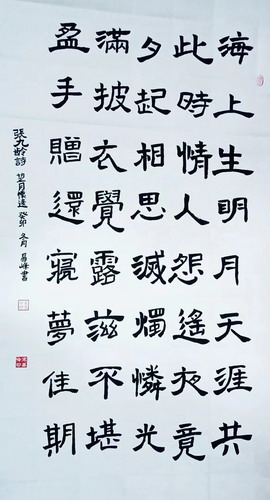 海上生明月天涯共
此時情人怨遙夜竟
夕起相思滅燭憐光
滿披衣覺露滋不堪
盈手贈還寢夢佳期
張九齡詩 望月懷遠 癸卯冬月 易峰書